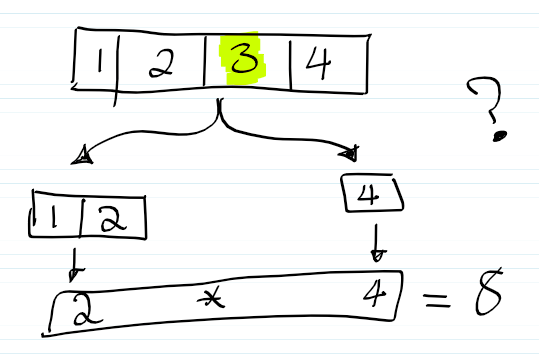 1 2 3 4
?
1 2
4
2 * 4 = 8